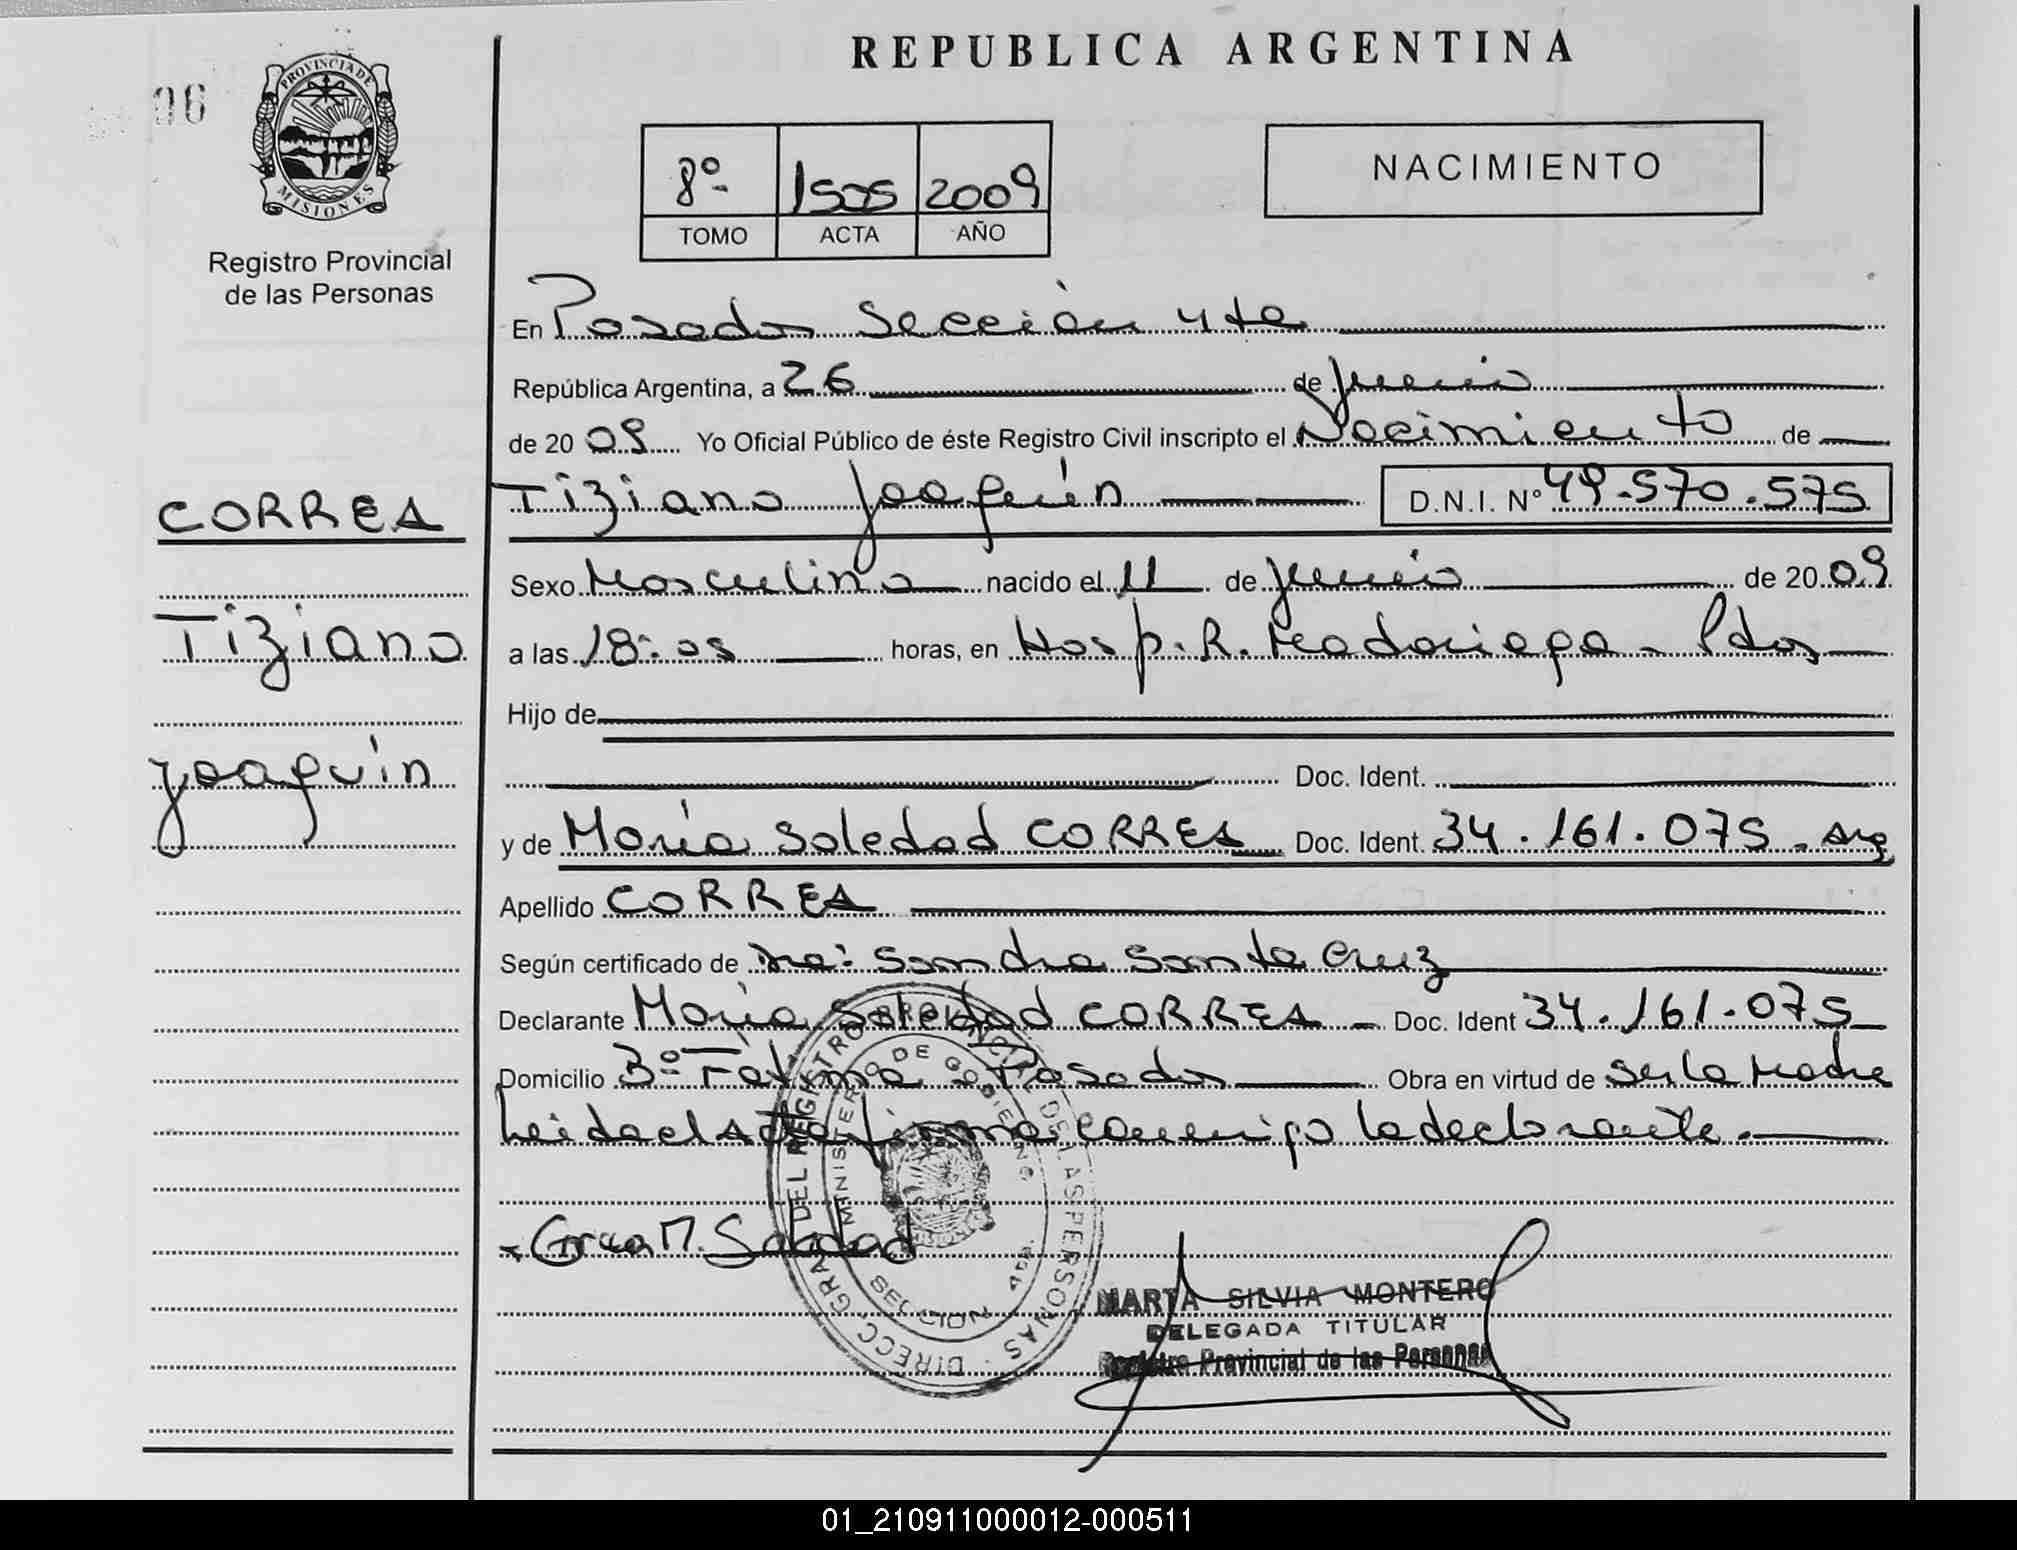 REPUBLICA ARGENTINA
06
PROVINCIA DE
MISIONES
Registro Provincial
de las Personas
8º 1505 2009
TOMO ACTA AÑO
NACIMIENTO
En Posadas Sección 4ta
República Argentina, a 26 de junio
de 2009 Yo Oficial Público de éste Registro Civil inscripto el Nacimiento de
CORREA
Tiziano
Joaquín
Tiziano Joaquín D.N.I. Nº 49.570.575
Sexo Masculino nacido el 11 de junio de 2009
a las 18:05 horas, en Hosp. R. Madariaga - Pdas
Hijo de
Doc. Ident.
y de María Soledad CORREA Doc. Ident. 34.161.075 - Arg
Apellido CORREA
Según certificado de Dra: Sandra Santa Cruz
Declarante María Soledad CORREA - Doc. Ident 34.161.075
Domicilio Bº Fátima - Posadas Obra en virtud de ser la Madre
Leída el Acta firma conmigo la declarante.
M. Soledad
DIRECC. GRAL. DEL REGISTRO PROVINCIAL DE LAS PERSONAS
MINISTERIO DE GOBIERNO
SECCION 4ta.
MARTA SILVIA MONTERO
DELEGADA TITULAR
Registro Provincial de las Personas
01_210911000012-000511